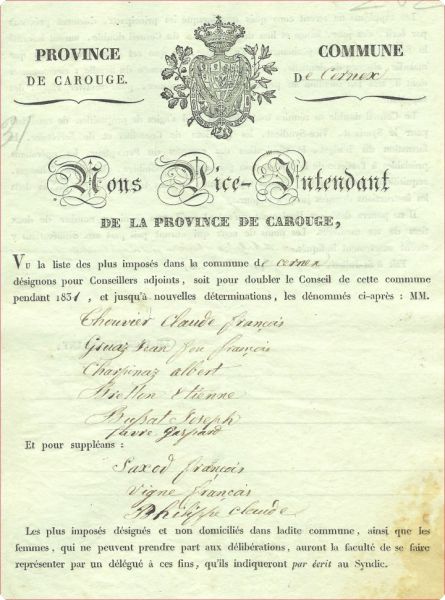 PROVINCE
DE CAROUGE.
COMMUNE
De Cernex
Nous Vice-Intendant
DE LA PROVINCE DE CAROUGE,
Vu la liste des plus imposés dans la commune de cernex
désignons pour Conseillers adjoints, soit pour doubler le Conseil de cette commune
pendant 1831, et jusqu'à nouvelles déterminations, les dénommés ci-après : MM.
Chouvier Claude françois
Gruaz Jean feu françois
Charpinaz albert
Bretton Etienne
Bussat Joseph
favre Gaspard
Et pour suppléans :
Saxod françois
Vigne françois
Philippe Claude
Les plus imposés désignés et non domiciliés dans ladite commune, ainsi que les
femmes, qui ne peuvent prendre part aux délibérations, auront la faculté de se faire
représenter par un délégué à ces fins, qu'ils indiqueront par écrit au Syndic.